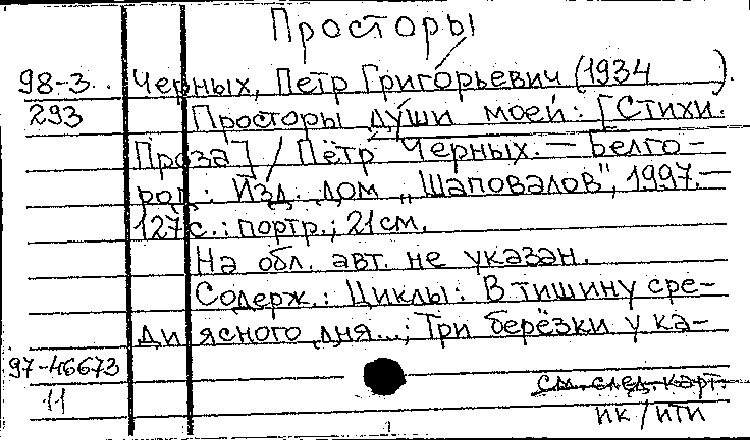 Просторы
98-3. Черных, Петр Григорьевич (1934 ).
293 Просторы души моей: [Стихи.
Проза] / Пётр Черных. — Белго-
род: Изд. дом „Шаповалов", 1997.—
127с.: портр.; 21см.
На обл. авт. не указан.
Содерж.: Циклы: В тишину сре-
ди ясного дня...; Три берёзки у ка-
97-46673
11
см. след. карт.
ик/ити